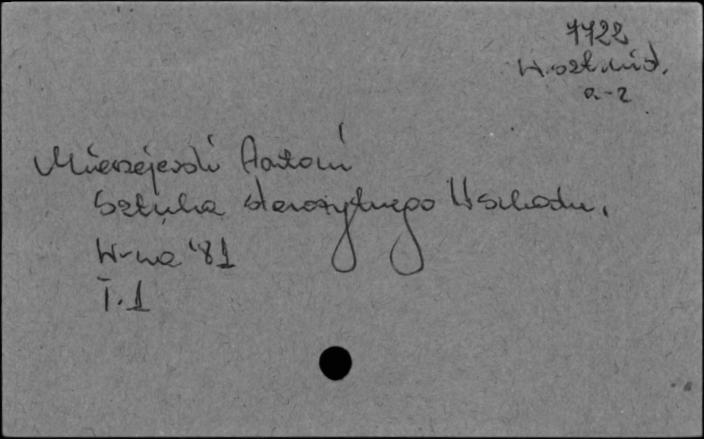 7722
H. szt. uid.
a-z
Mierzejewski Antoni
Sztuka starożytnego Wschodu.
W-wa '81
T. 1